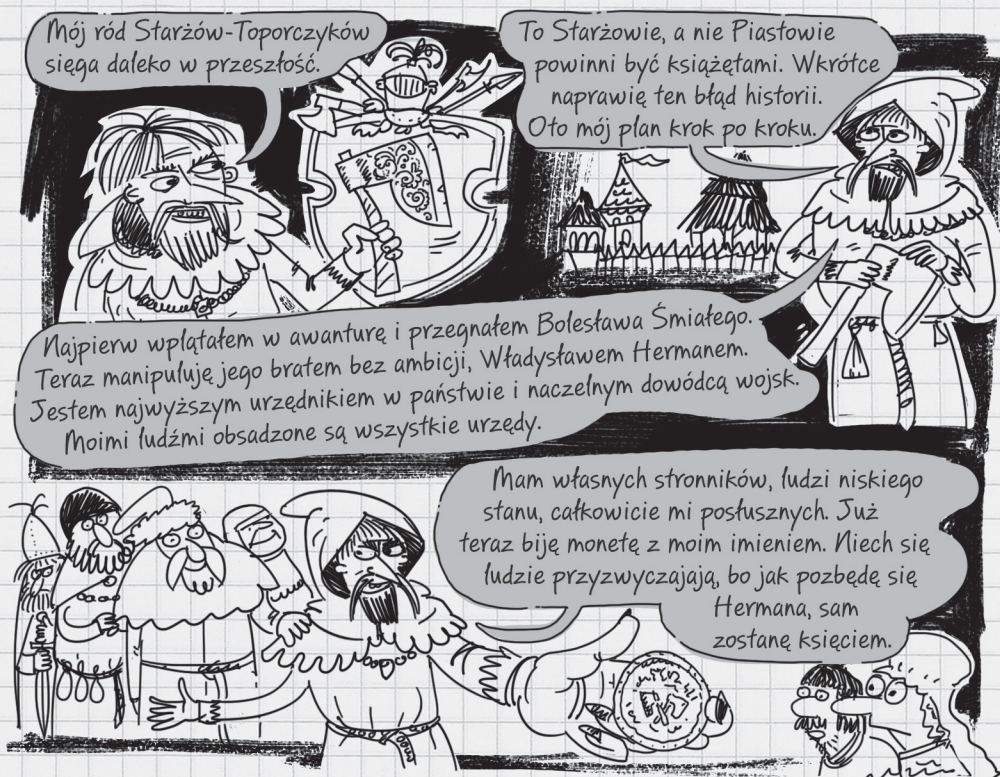 Mój ród Starżów-Toporczyków
sięga daleko w przeszłość.
To Starżowie, a nie Piastowie
powinni być książętami. Wkrótce
naprawię ten błąd historii.
Oto mój plan krok po kroku.
Najpierw wplątałem w awanturę i przegnałem Bolesława Śmiałego.
Teraz manipuluję jego bratem bez ambicji, Władysławem Hermanem.
Jestem najwyższym urzędnikiem w państwie i naczelnym dowódcą wojsk.
Moimi ludźmi obsadzone są wszystkie urzędy.
Mam własnych stronników, ludzi niskiego
stanu, całkowicie mi posłusznych. Już
teraz biję monetę z moim imieniem. Niech się
ludzie przyzwyczajają, bo jak pozbędę się
Hermana, sam
zostanę księciem.